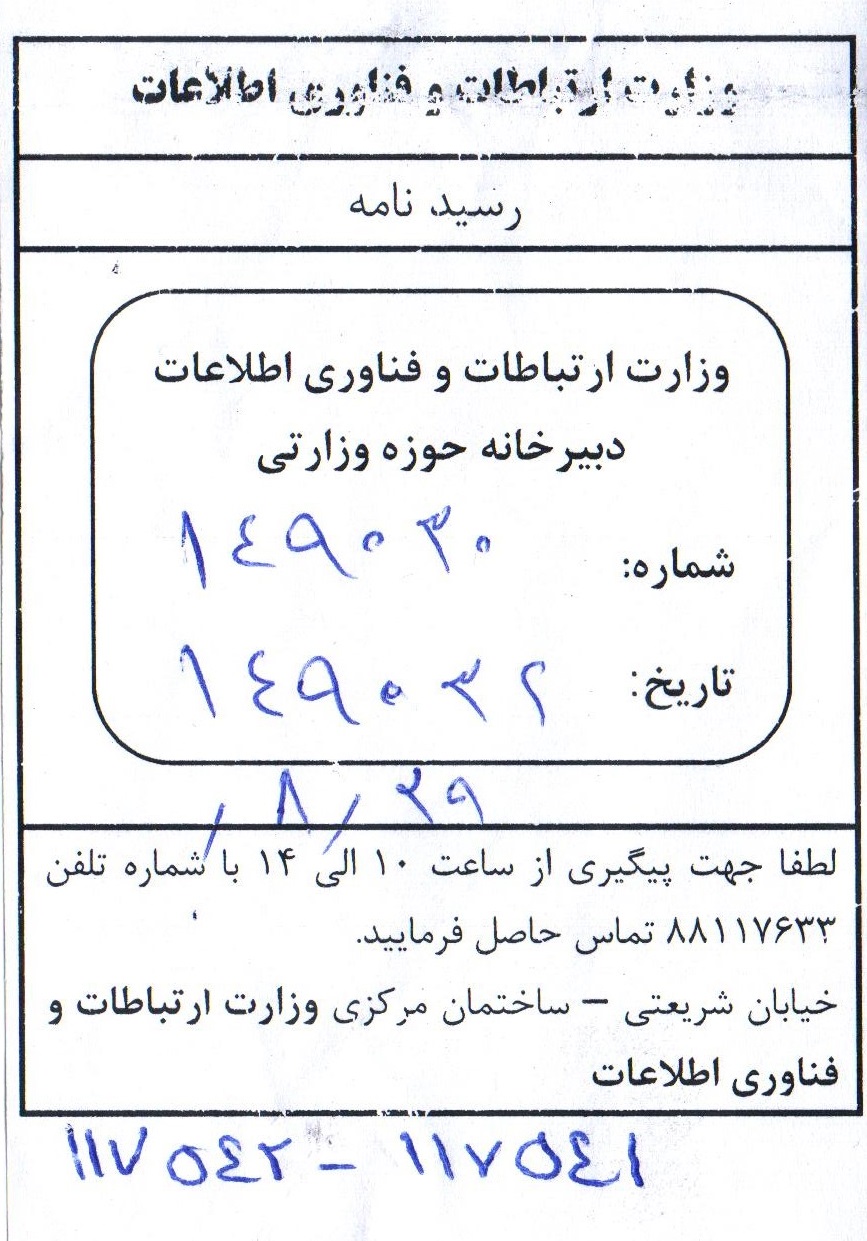 وزارت ارتباطات و فناوری اطلاعات
رسید نامه
وزارت ارتباطات و فناوری اطلاعات
دبیرخانه حوزه وزارتی
شماره: ۱۴۹۰۳۰
تاریخ: ۱۴۹۰۳۲
/ ۸ / ۲۹
لطفا جهت پیگیری از ساعت ۱۰ الی ۱۴ با شماره تلفن
۸۸۱۱۷۶۳۳ تماس حاصل فرمایید.
خیابان شریعتی – ساختمان مرکزی وزارت ارتباطات و
فناوری اطلاعات
۱۱۷۵۴۲ - ۱۱۷۵۴۱